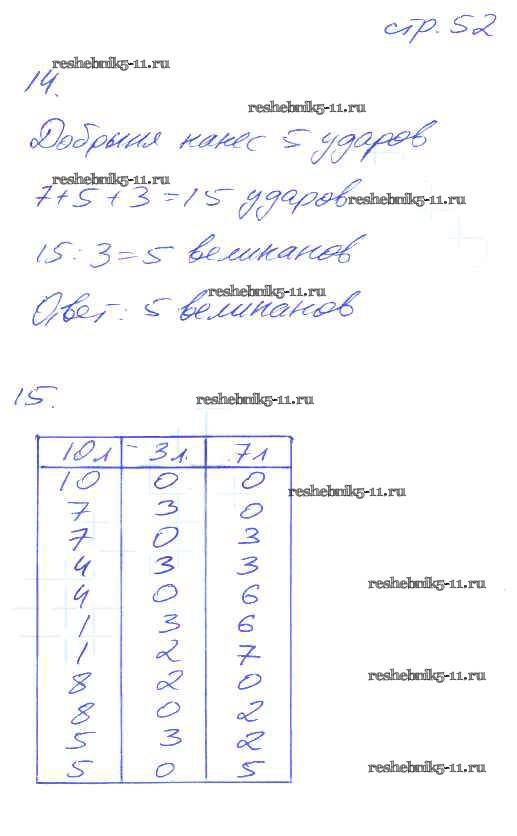 стр. 52
reshebnik5-11.ru
14.
reshebnik5-11.ru
Добрыня нанес 5 ударов
reshebnik5-11.ru
7+5+3=15 ударов
reshebnik5-11.ru
15:3=5 великанов
reshebnik5-11.ru
Ответ: 5 великанов
15.
reshebnik5-11.ru
10л 3л 7л
10 0 0
reshebnik5-11.ru
7 3 0
7 0 3
4 3 3
reshebnik5-11.ru
4 0 6
1 3 6
1 2 7
reshebnik5-11.ru
8 2 0
8 0 2
5 3 2
5 0 5
reshebnik5-11.ru